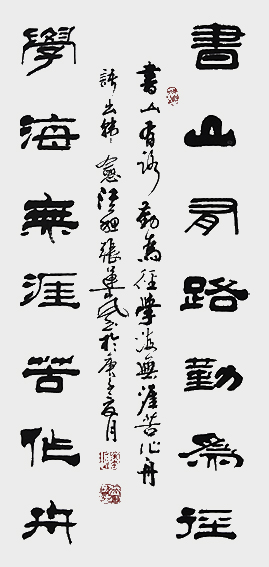 書山有路勤為徑
學海無涯苦作舟
書山有路勤為徑學海無涯苦作舟
語出韓愈 張 於庚 月